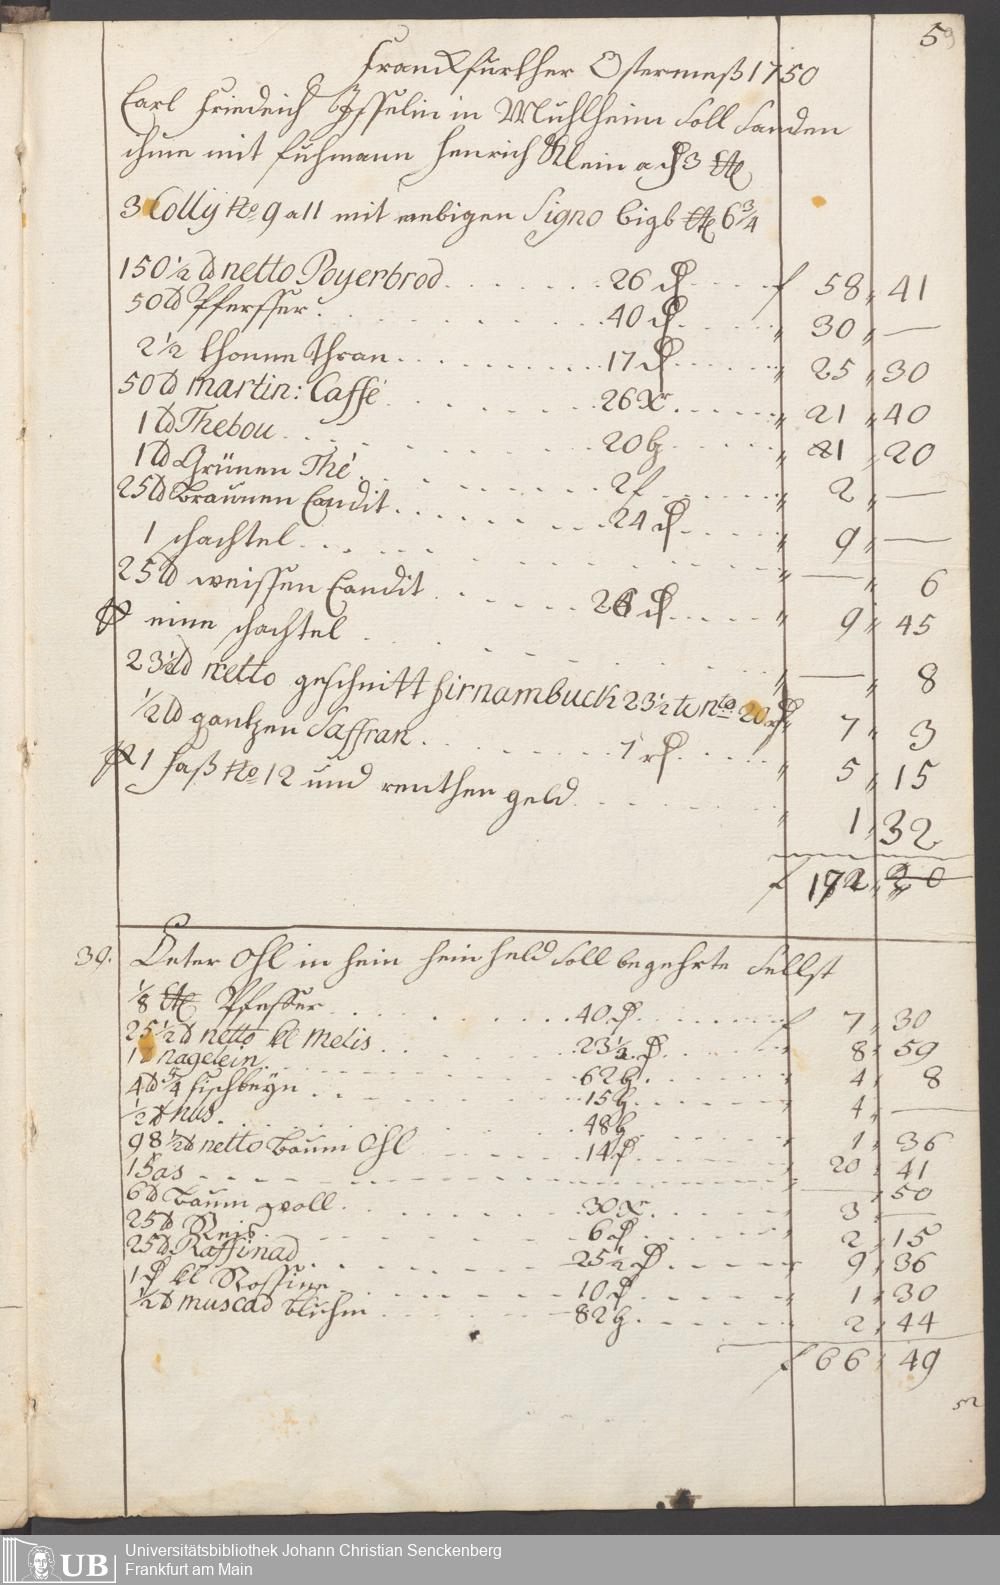 59
Franckfurther Ostermeß 1750
Carl Friedrich Ysselin in Muhlheim soll sanden
ihme mit fuhmann Henrich Klein a 3
3 Collÿ No 9 a 11 mit nebigen Signo 6 3/4
150 1/2 ℔ netto Poyerbrod 26 f 58 41
50 ℔ Pfeffer 40 30 —
2 1/2 thonne thran 17 25 30
50 ℔ martin: Caffé 26 X 21 40
1 ℔ Thebou 20 1 20
1 ℔ Grünen Thé 2f 2 —
25 ℔ braunen Candit 24 9 —
1 schachtel — 6
25 ℔ weissen Candit 26 9 45
eine schachtel — 8
23 1/2 ℔ netto geschnitt firnambuck 23 1/2 20 7 3
1/2 ℔ gantzen Saffran 7 5 15
1 faß No 12 und renthen geld 1 32
f 172 20
39. Peter Ohl in hein heinfeld soll begehrte sellst
1/8 Pfeffer 40 f 7 30
25 1/2 ℔ netto kl Melis 23 1/2 8 59
1 nagelein 62 4 8
4 ℔ 5/4 fischbeyn 15 4 —
1/2 ℔ nus 48 1 36
98 1/2 ℔ netto baum Ohl 14 20 41
1 fas — 50
6 ℔ baum woll 30 X 3 —
25 ℔ Reis 6 2 15
25 ℔ Raffinad 25 1/2 9 36
1 kl Rossine 10 1 30
1/2 ℔ muscad bluhm 82 2 44
f 66 49
UB
Universitätsbibliothek Johann Christian Senckenberg
Frankfurt am Main